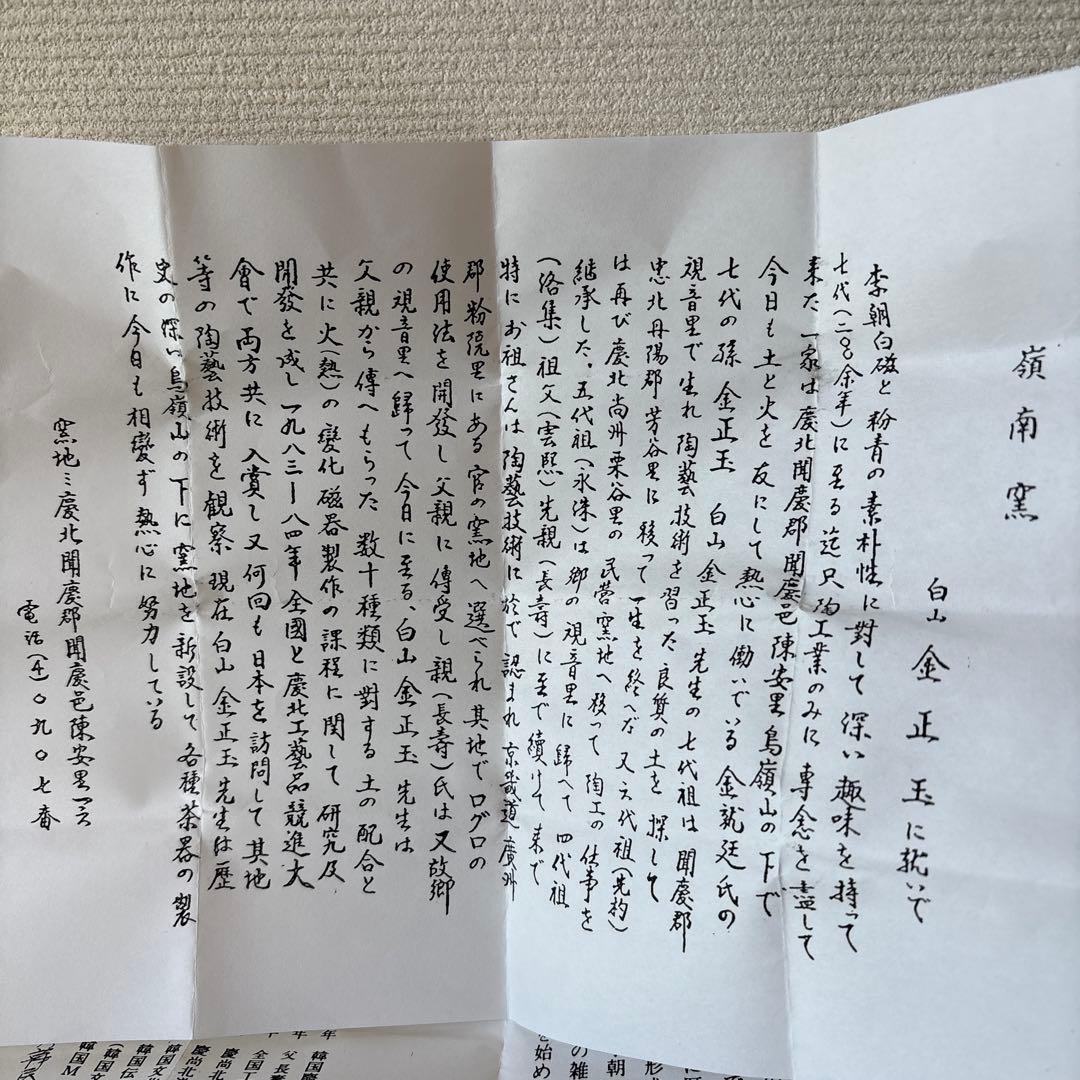 嶺南窯
白山 金正玉に就いで
李朝白磁と粉青の素朴性に對して深い趣味を持って
七代(二〇〇余年)に至る迄只陶工業のみに専念を盡して
来た一家は慶北聞慶郡聞慶邑陳安里鳥嶺山の下で
今日も土と火を友にして熱心に働いでいる金就廷氏の
七代の孫 金正玉 白山 金正玉先生の七代祖は聞慶郡
観音里で生れ陶藝技術を習った良質の土を探して
忠北丹陽郡芳谷里に移って一生を終へた又六代祖(光杓)
は再び慶北尚州栗谷里の民営窯地へ移って陶工の仕事を
継承した、五代祖(永洙)は郷の観音里に歸へて四代祖
(洛集)祖父(雲熙)先親(長壽)に至で續けて来で
特にお祖さんは陶藝技術に於で認まれ京畿道廣州
郡粉院里にある官の窯地へ選べられ其地でログロの
使用法を開發し父親に傳受し親(長壽)氏は又故郷
の観音里へ歸って今日に至る、白山 金正玉先生は
父親から傳へもらった数十種類に對する土の配合と
共に火(熱)の變化磁器製作の課程に関して研究及
開發を成し一九八三ー八四年全國と慶北工藝品競進大
會で両方共に入賞し又何回も日本を訪問して其地
等の陶藝技術を観察 現在白山 金正玉先生は歴
史の深い鳥嶺山の下に窯地を新設して各種茶器の製
作に今日も相變ず熱心に努力している
窯地ミ慶北聞慶郡聞慶邑陳安里
電話(4)〇九〇七番
を始め
の雑
朝
形式
韓国慶
父長壽
全国工
慶尚北
慶尚北道
韓国文
韓国伝
(韓国文
韓国M